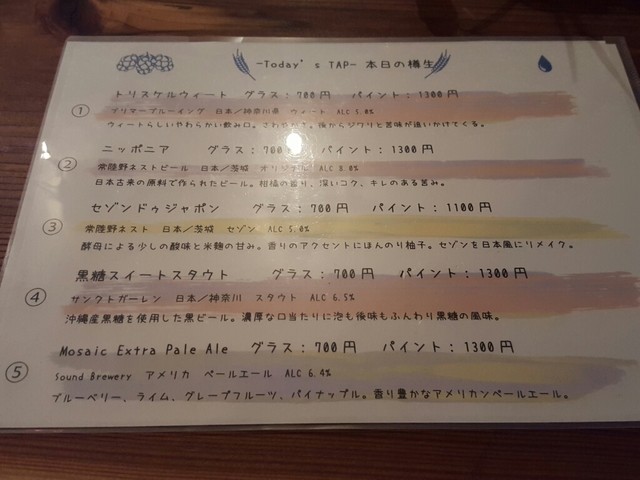 -Today's TAP- 本日の樽生
① トリスケルウィート グラス：700円 パイント：1300円
ブリマーブルーイング 日本／神奈川県 ウィート ALC 5.0%
ウィートらしいやわらかい飲み口。さわやかさ。後からジワリと苦味が追いかけてくる。
② ニッポニア グラス：700 パイント：1300円
常陸野ネストビール 日本／茨城 オリジナル ALC 8.0%
日本古来の原料で作られたビール。柑橘の香り、深いコク、キレのある苦み。
③ セゾンドゥジャポン グラス：700円 パイント：1100円
常陸野ネスト 日本／茨城 セゾン ALC 5.0%
酵母による少しの酸味と米麹の甘み。香りのアクセントにほんのり柚子。セゾンを日本風にリメイク。
④ 黒糖スイートスタウト グラス：700円 パイント：1300円
サンクトガーレン 日本／神奈川 スタウト ALC 6.5%
沖縄産黒糖を使用した黒ビール。濃厚な口当たりに泡も後味もふんわり黒糖の風味。
⑤ Mosaic Extra Pale Ale グラス：700円 パイント：1300円
Sound Brewery アメリカ ペールエール ALC 6.4%
ブルーベリー、ライム、グレープフルーツ、パイナップル。香り豊かなアメリカンペールエール。